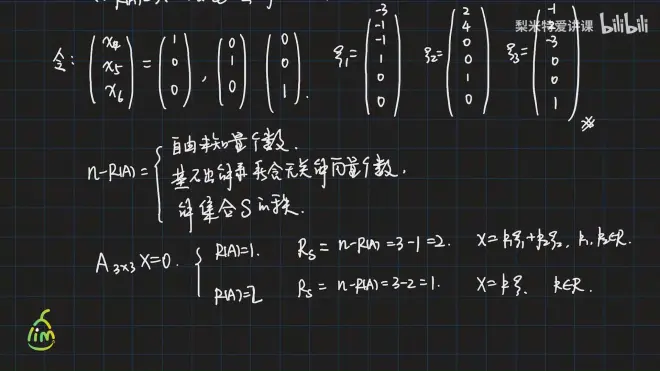 梨米特爱讲课 bilibili
令: (x4 x5 x6) = (1 0 0), (0 1 0) (0 0 1). ξ1 = (-3 -1 -1 1 0 0) ξ2 = (2 4 0 0 1 0) ξ3 = (-1 -2 -3 0 0 1) ※
自由未知量个数.
n-R(A) = { 基石出解系含无关解向量个数.
解集合S的秩.
A3×3 X=0. { R(A)=1. RS = n-R(A) = 3-1 = 2. X = k1ξ1+k2ξ2, k1, k2∈R.
R(A)=2 RS = n-R(A) = 3-2 = 1. X = kξ, k∈R.
lim